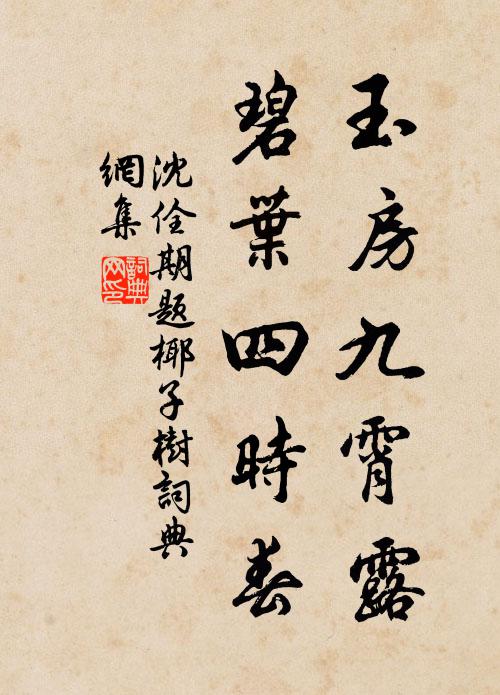 玉房九霄露
碧葉四時春
沈佺期題椰子樹詞典
網集
詞典
网印